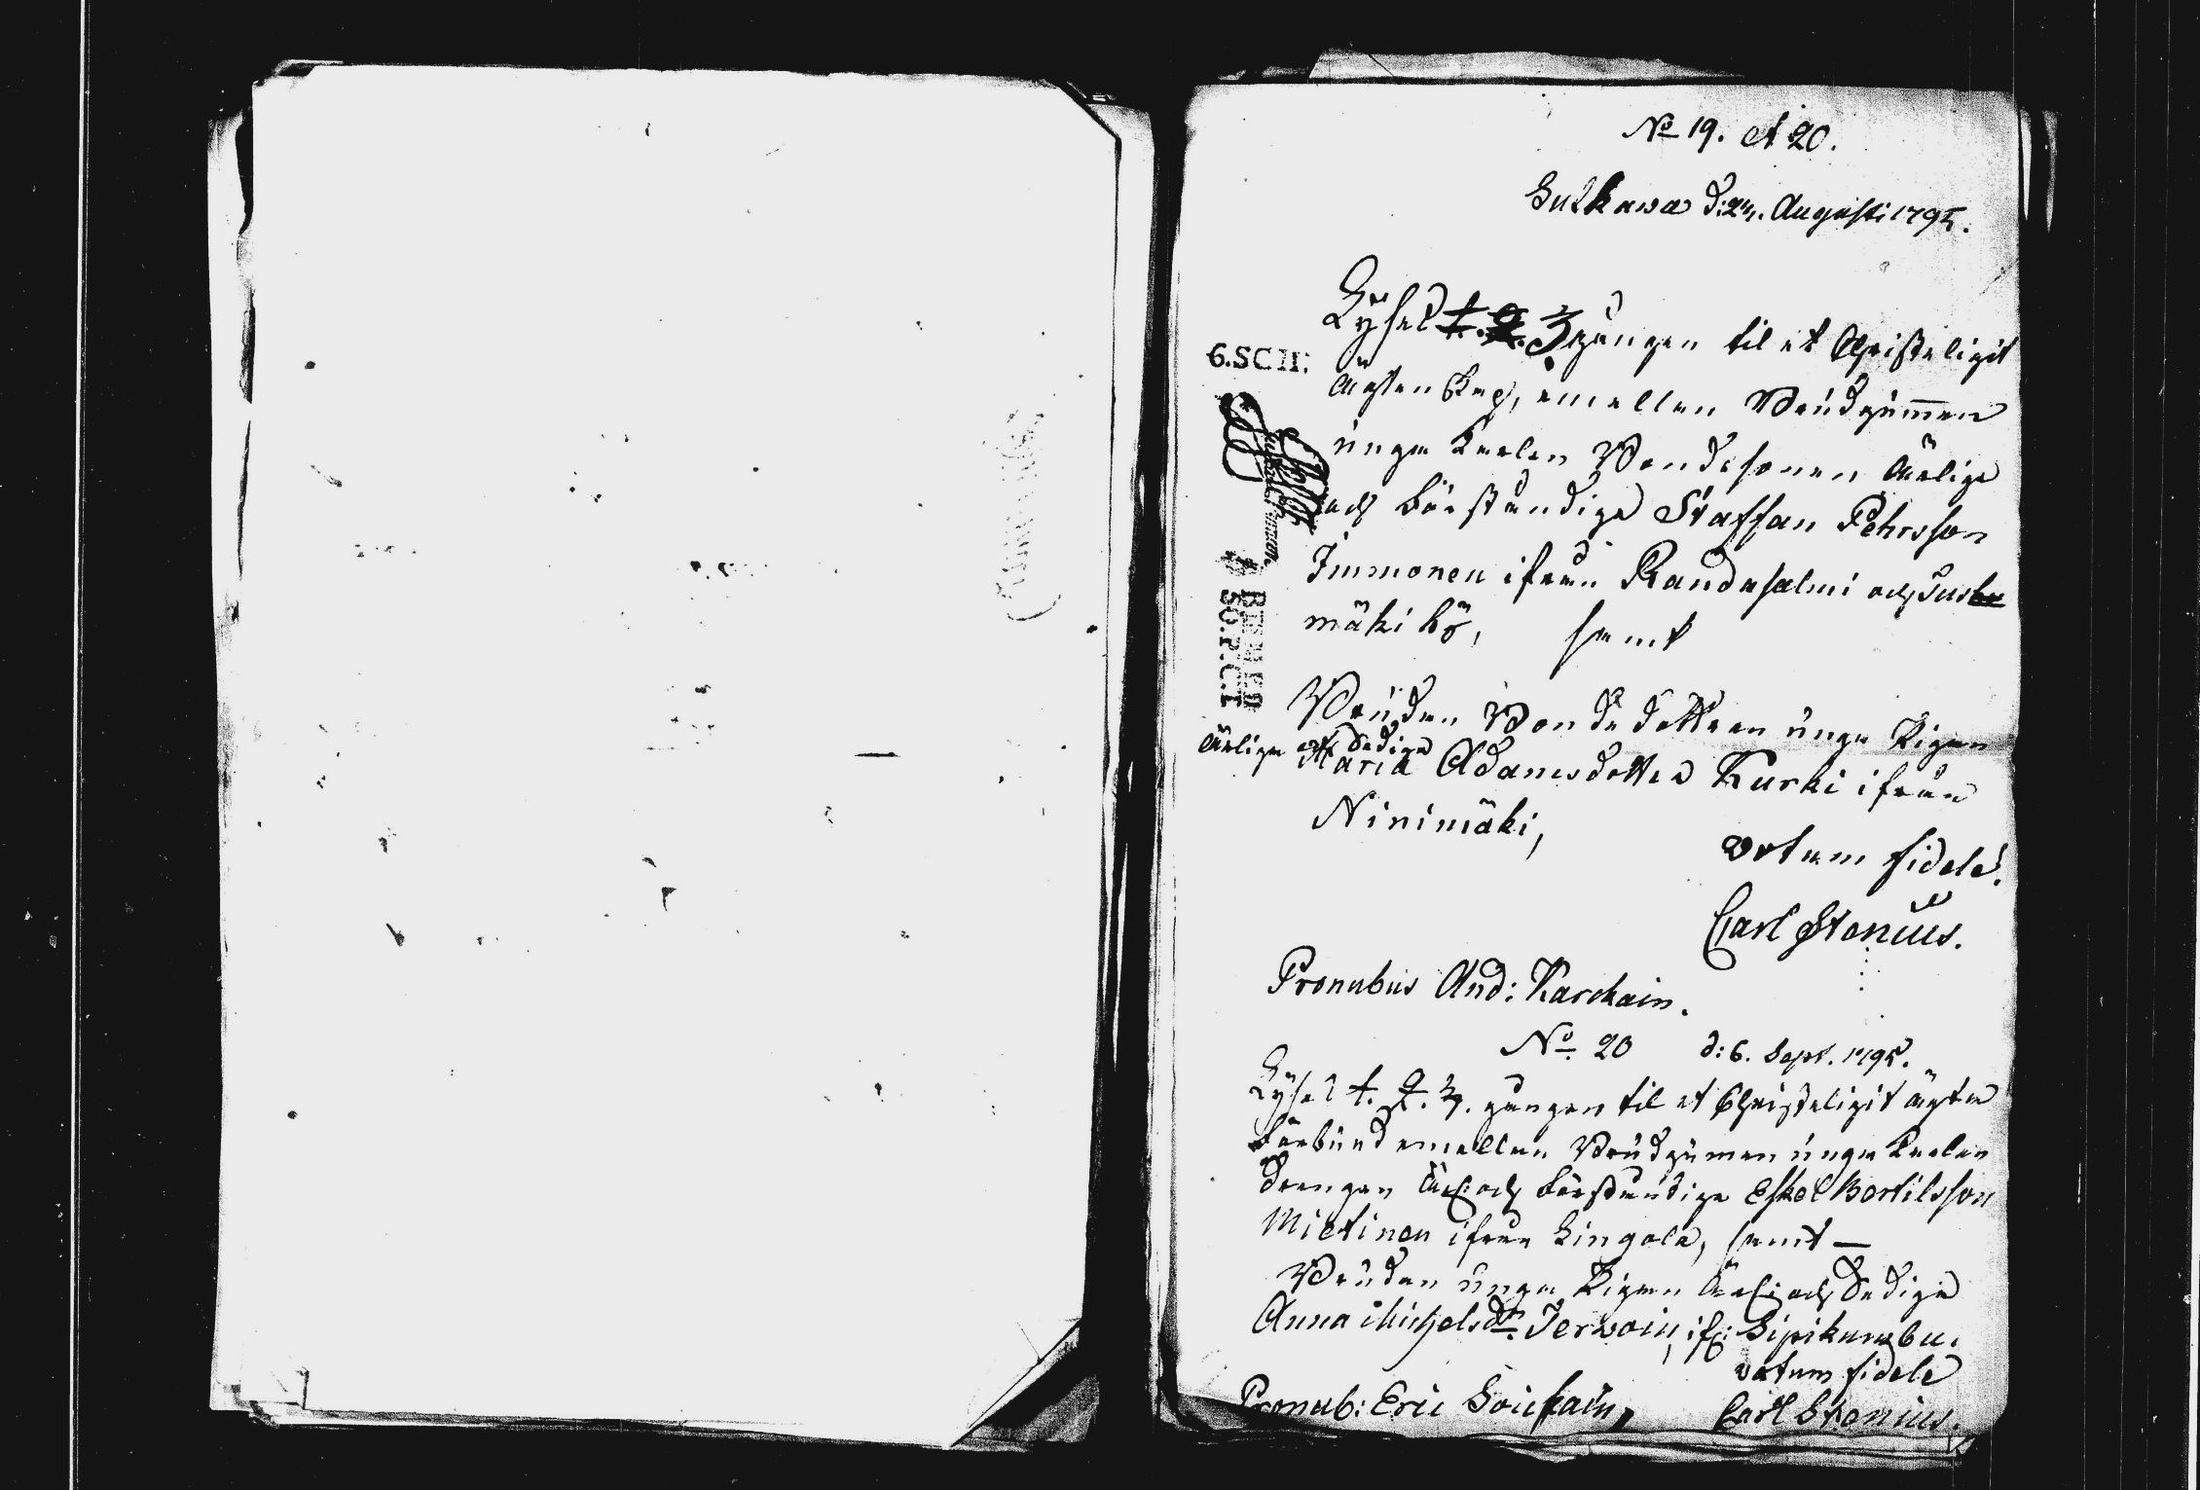 No 19. et 20.
Sulkawa d: 24. Augusti 1795.
Lyses 1. 2. 3 gången til et Christeligit
ägtenskap, emellan Brudgummen
unga Karlen Bondesonen ärlige
och förståndige Staffan Pehrsson
Immonen ifrån Randasalmi och Tusku
mäki by, samt
Bruden Bondedottren unga Pigan
ärliga och Sediga
Maria Adamsdotter Kurki ifrån
Ninimäki,
votum fidele!
Carl Stenius.
Pronubus And: Karckain.
No. 20 d: 6. Sept. 1795.
Lyses 1. 2. 3. gången til et Christeligit ägta
förbund emellan Brudgumen unga Karlen
drengen Ärl: och förståndige Eskel Bertilsson
Mietinen ifrån Lingola, samt —
Bruden unga Pigan Ärl: och Sediga
Anna Michelsdr. Jerwoin, ifr: Sipikumbu.
votum fidele
Carl Stenius.
Pronub: Eric Soickain,
6.SCH: